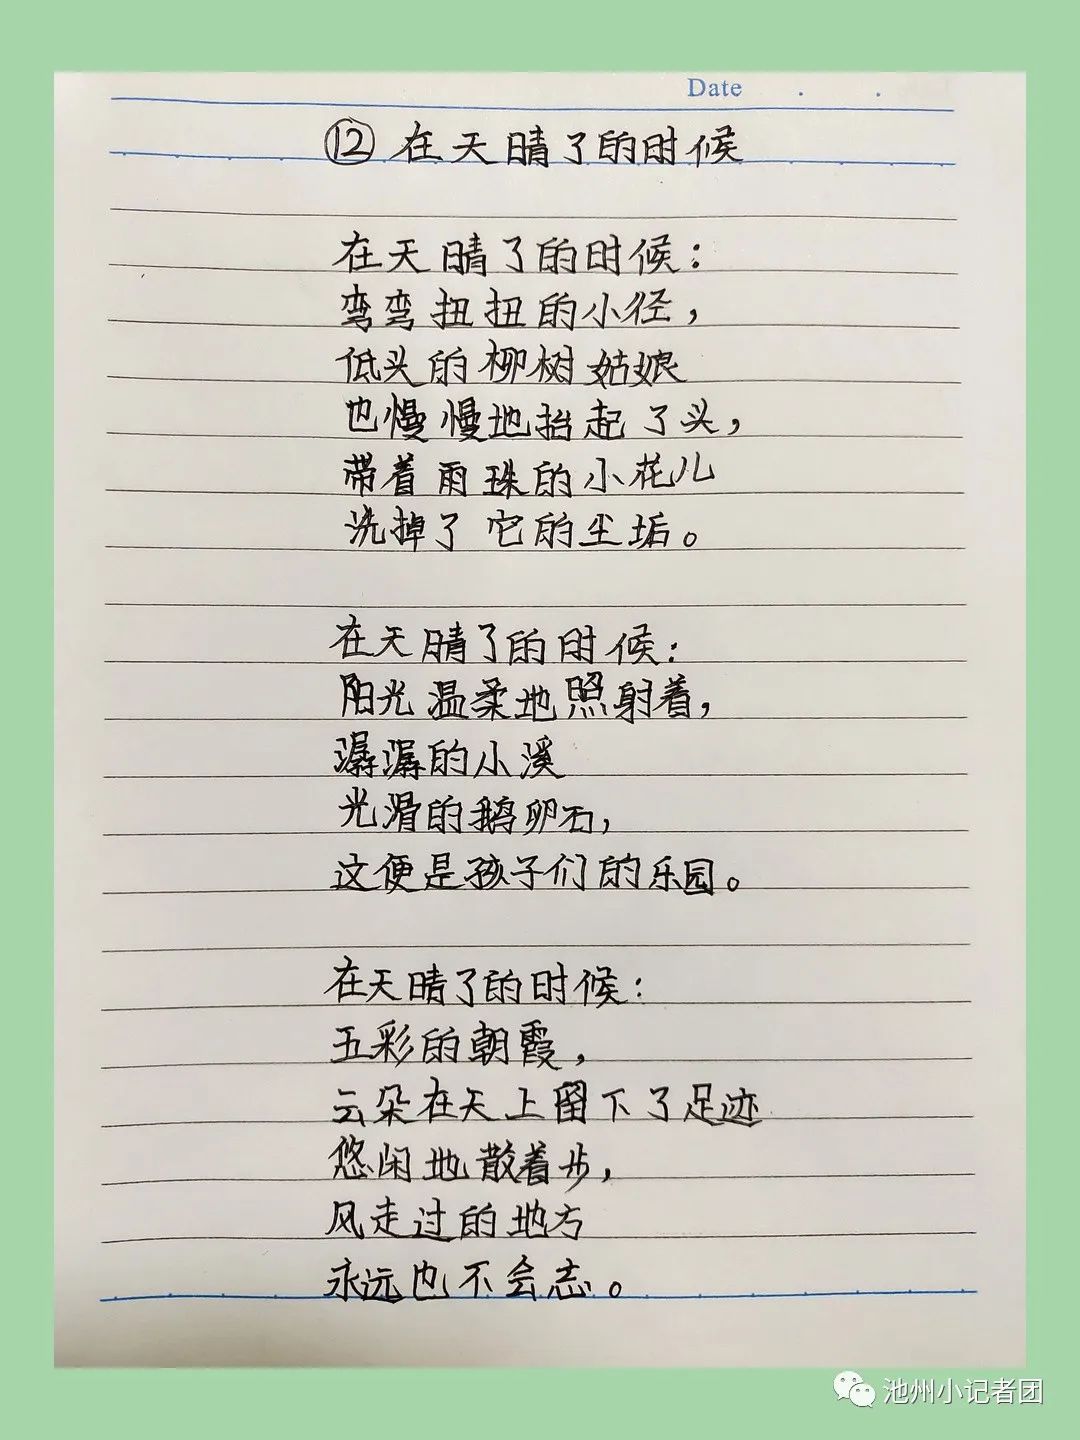 Date . .
⑫ 在天晴了的时候
在天晴了的时候：
弯弯扭扭的小径，
低头的柳树姑娘
也慢慢地抬起了头，
带着雨珠的小花儿
洗掉了它的尘垢。
在天晴了的时候：
阳光温柔地照射着，
潺潺的小溪
光滑的鹅卵石，
这便是孩子们的乐园。
在天晴了的时候：
五彩的朝霞，
云朵在天上留下了足迹
悠闲地散着步，
风走过的地方
永远也不会忘。
池州小记者团